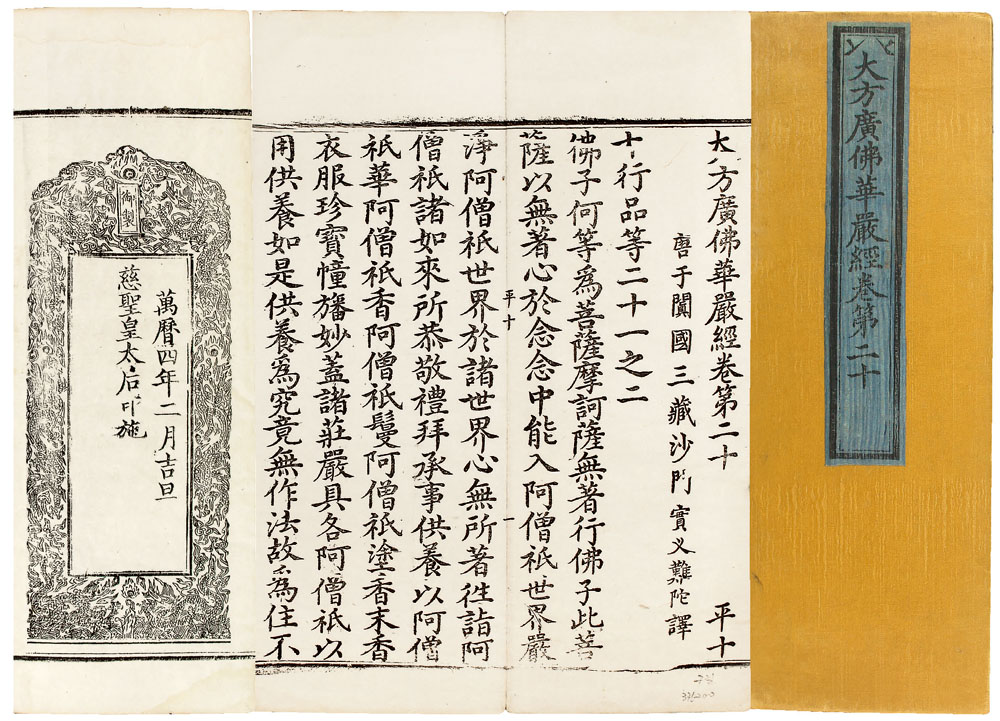 大方廣佛華嚴經卷第二十
大方廣佛華嚴經卷第二十 平十
唐于闐國三藏沙門實叉難陀譯
十行品等二十一之二
佛子何等爲菩薩摩訶薩無著行佛子此菩
薩以無著心於念念中能入阿僧祇世界嚴
平十 一
淨阿僧祇世界於諸世界心無所著徃詣阿
僧祇諸如來所恭敬禮拜承事供養以阿僧
祇華阿僧祇香阿僧祇鬘阿僧祇塗香末香
衣服珍寶幢旛妙蓋諸莊嚴具各阿僧祇以
用供養如是供養爲究竟無作法故爲住不
御製
萬曆四年二月吉旦
慈聖皇太后印施